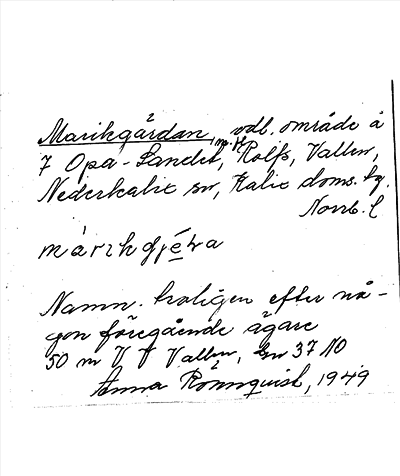 Marikgärdan, m. pl. odl. område å
7 Opa-Landet, Rolfs, Vallen,
Nederkalix sn, Kalix doms. tg.
Norrb. l
márikgjęʹra
Namn. troligen efter nå-
gon föregående ägare
50 m V f Vallen, Ru 37 NO
Anna Rönnquist, 1949